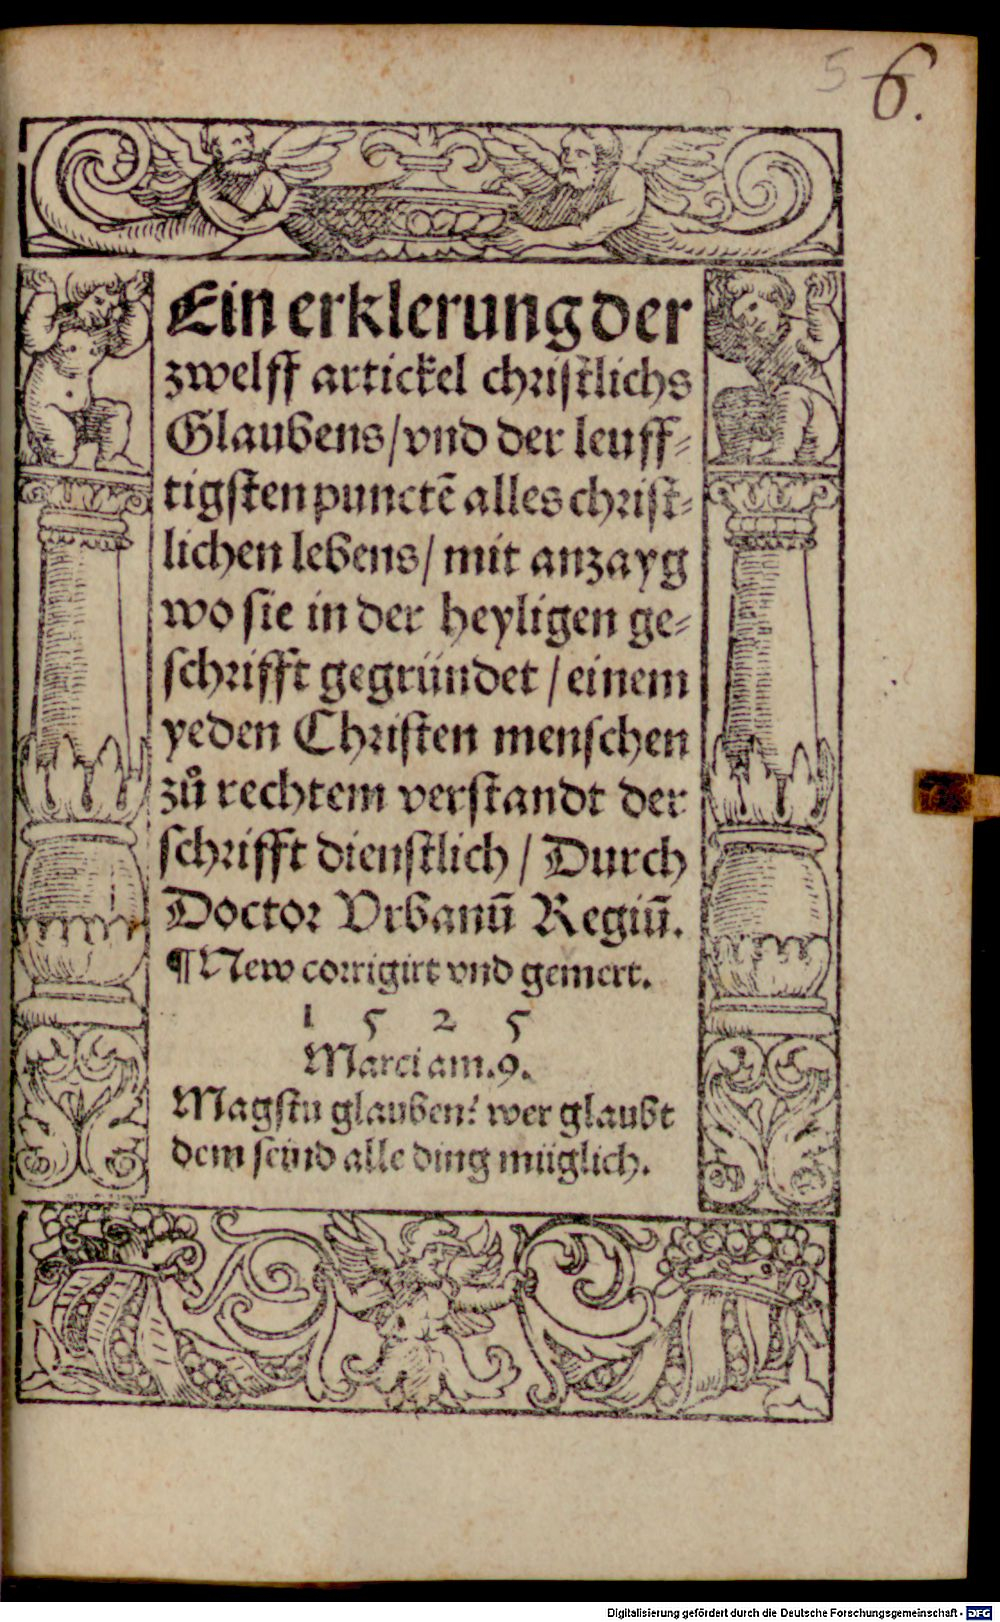 5 6.
Ein erklerung der
zwelff artickel christlichs
Glaubens / vnd der leuff⸗
tigsten punctẽ alles christ⸗
lichen lebens / mit anzayg
wo sie in der heyligen ge⸗
schrifft gegründet / einem
yeden Christen menschen
zů rechtem verstandt der
schrifft dienstlich / Durch
Doctor Vrbanũ Regiũ.
¶ New corrigirt vnd gemert.
1 5 2 5
Marci am .9.
Magstu glauben? wer glaubt
dem seind alle ding müglich.
Digitalisierung gefördert durch die Deutsche Forschungsgemeinschaft - DFG